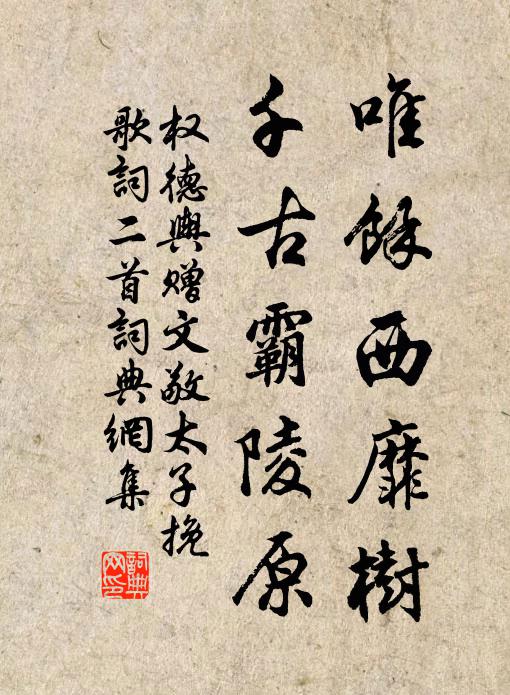 唯餘西靡樹
千古霸陵原
权德輿赠文敬太子挽
歌詞二首詞典網集
詞典網印